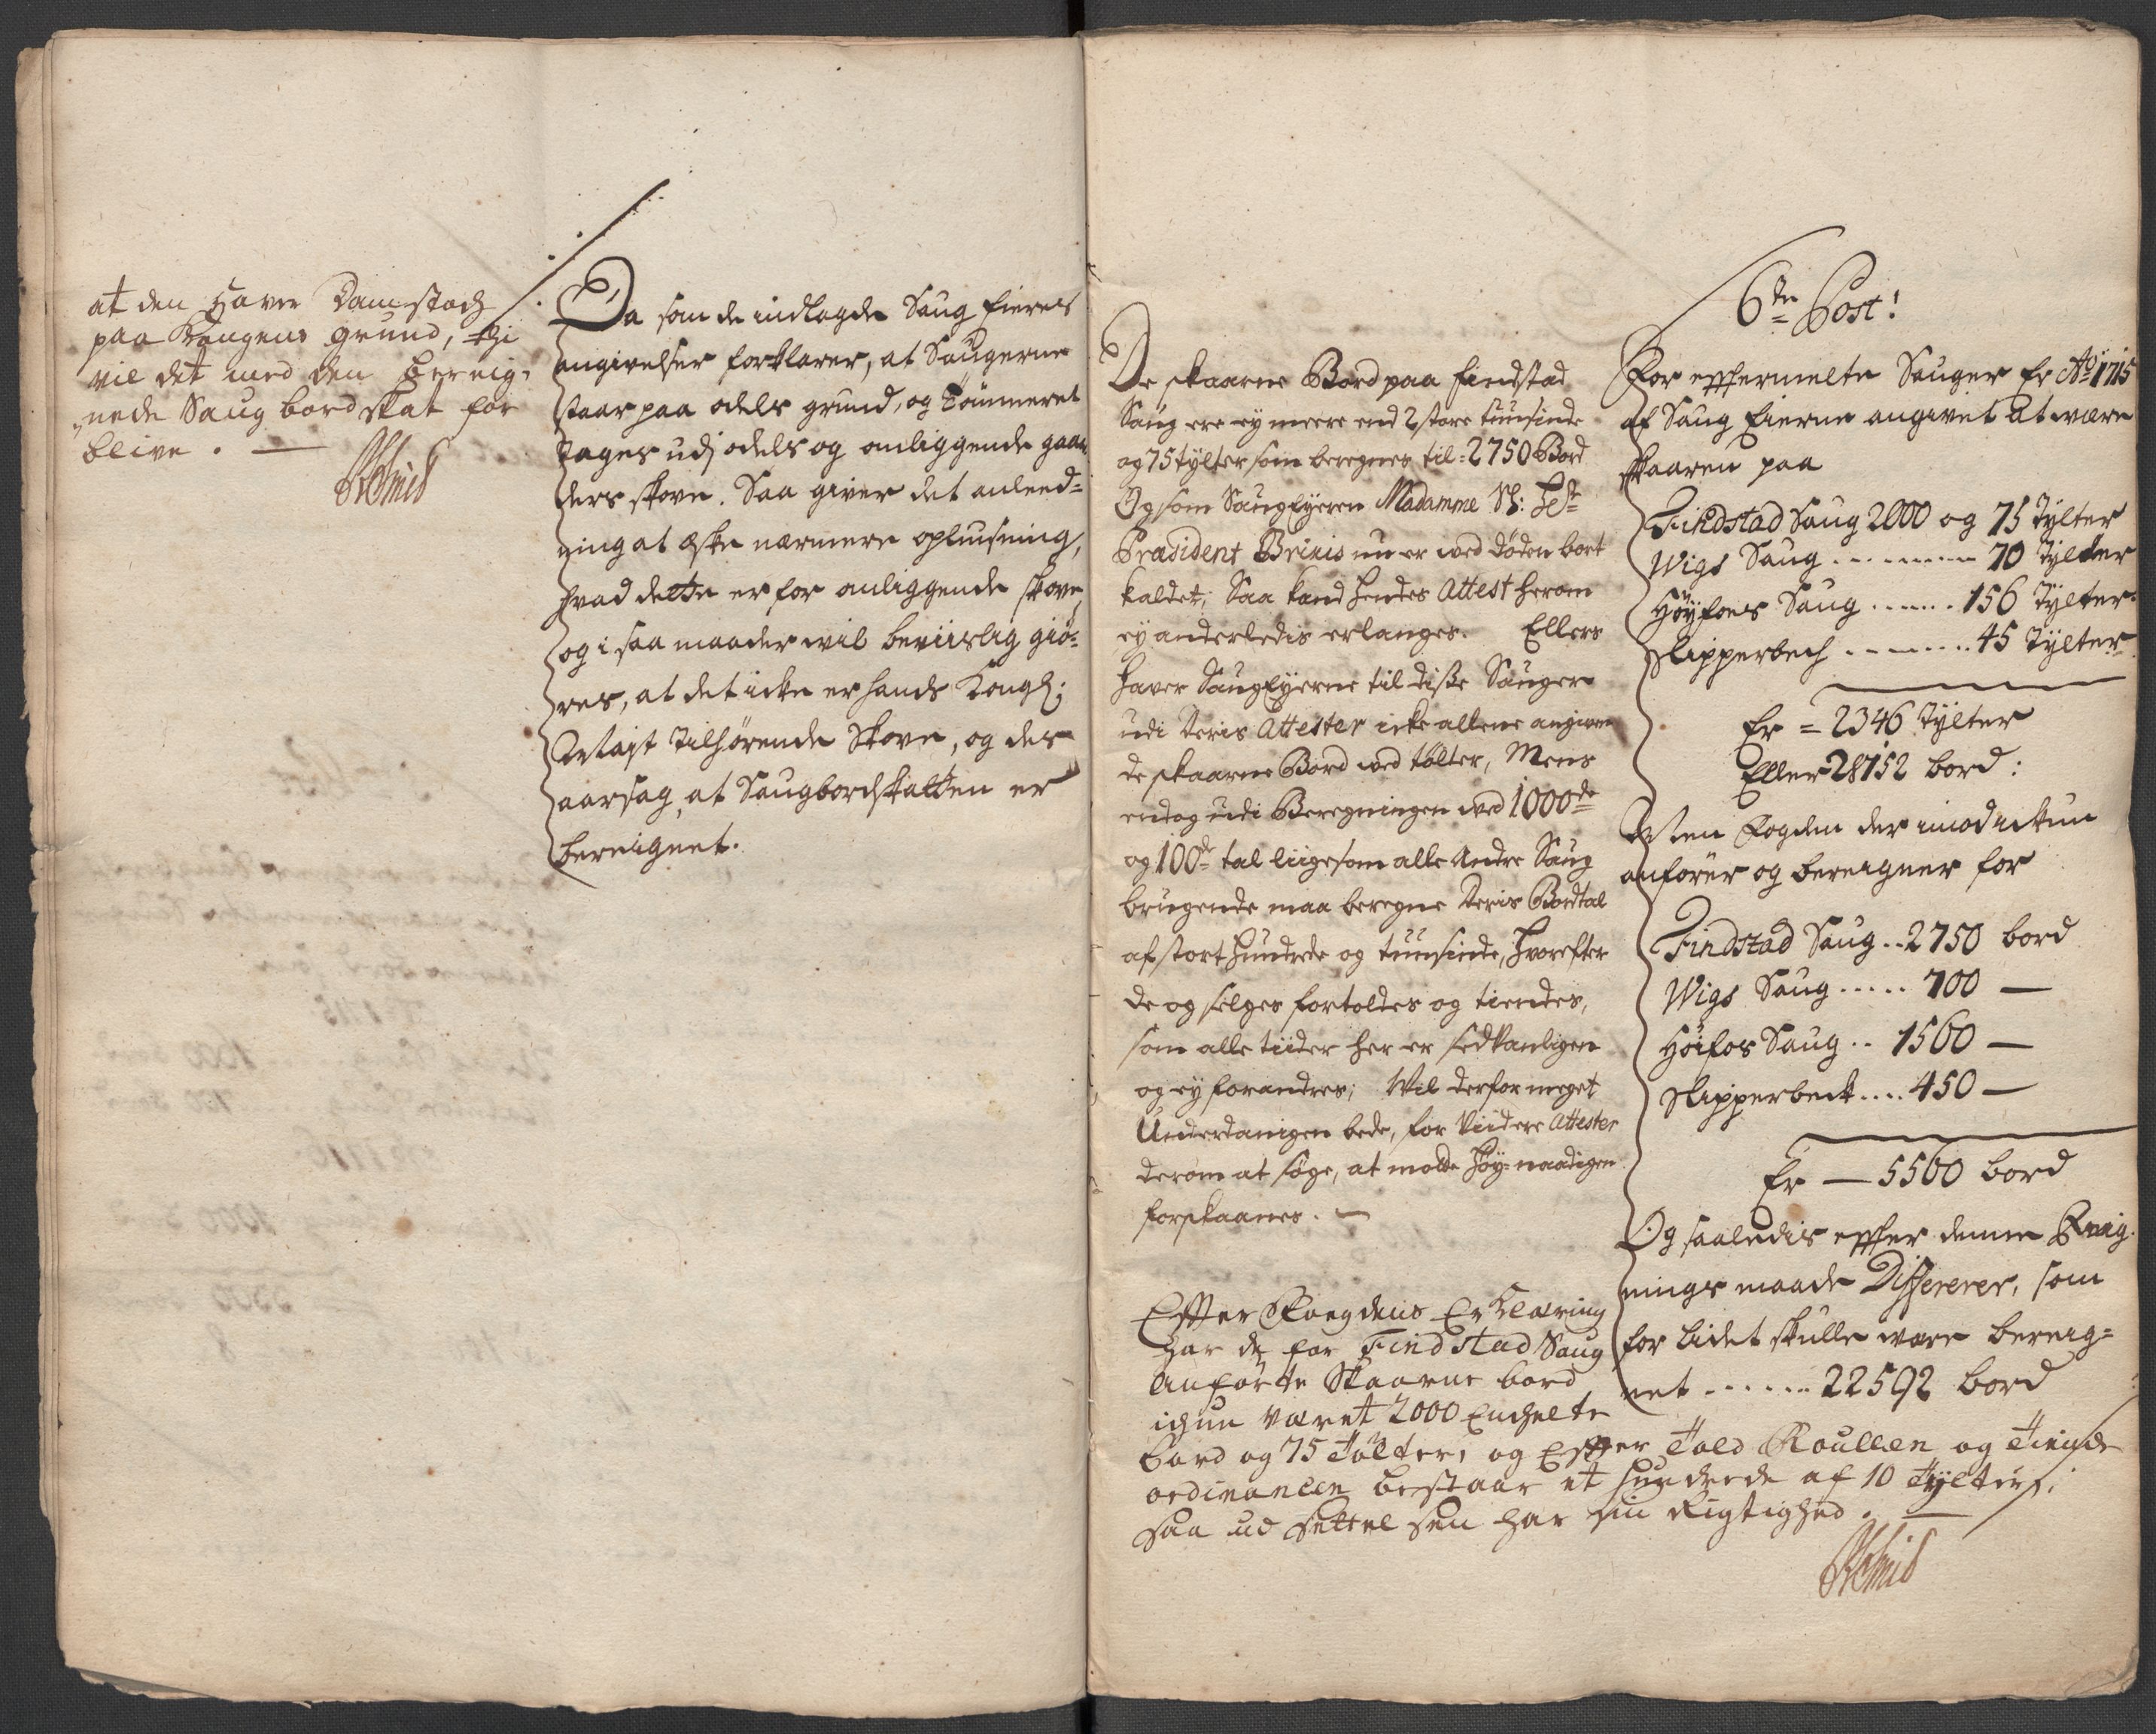 at den haver Damstoch
paa Kongens grund, thi
vil det med den bereig-
nede Saug bord skat for
blive. —
Da som de indlagde Saug Eieres
angivelser forklarer, at Saugerne
staar paa odels grund, og Tömmeret
tages udj odels og omliggende gaar
ders skove. Saa giver det anleed=
ning at æske nærmere opliusning,
hvad dette er for omliggende skove,
og i saa maader wil beviislig giö-
res, at det icke er hands Kongl:
Mayst tilhörende Skove, og der
aarsag, at Saugbordskatten er
bereignet.
De skaarne Bord paa Findstad
Saug ere ey meere end 2 store tuusinde
og 75 tylter som beregnes til= 2750 Bord
Og som SaugEyeren Madamme Sl:
Præsident Brixis nu er ved döden bort
kaldet; Saa kand hendes Attest herom
ey anderledis erlanges. Ellers
haver SaugEyerne til disse Sauger
udi deris Attester icke allene angiven
de skaarne Bord ved tölter, Mens
endog udi Beregningen ved 1000de
og 100de tal liigesom alle Andre Saug
brugende maa beregne deris Bordtal
af stort hundrede og tuusinde, hvorefter
de og selges fortoldes og tiendes,
som alle tiider her er sedvanligen
og ey forandres; Wil derfor meget
Underdanigen bede, for Viidere Attester
derom at söge, at motte höy-naadigen
forskaanes. —
Effter Foegdens Erklæring
har de for Findstad Saug
Anförte Skaarne bord
ichun været 2000 Enchelte
bord og 75 Tölter, og Effter Told Roullen og Tiende
ordinancen bestaar et hundrede af 10 Tylter,
saa ud settelsen har sin Rigtighed. —
6te Post!
For effterm­elte Sauger Er Ao 1715
af Saug Eierne angivet at være
skaaren paa
Findstad Saug 2000 og 75 Tylter
Wigs Saug ........ 70 Tylter
Höyfoes Saug ...... 156 Tylter
Slipperbech ........ 45 Tylter
Er = 2346 Tylter
Eller 28152 bord:
Men Fogden der imod ickun
anförer og bereigner for
Findstad Saug .. 2750 bord
Wigs Saug ..... 700 —
Höifos Saug .. 1560 —
Slipperbeck .... 450 —
Er — 5560 bord
Og saaledis effter denne Reig-
nings maade Differerer, som
for lidet skulle være bereig=
net ...... 22592 bord